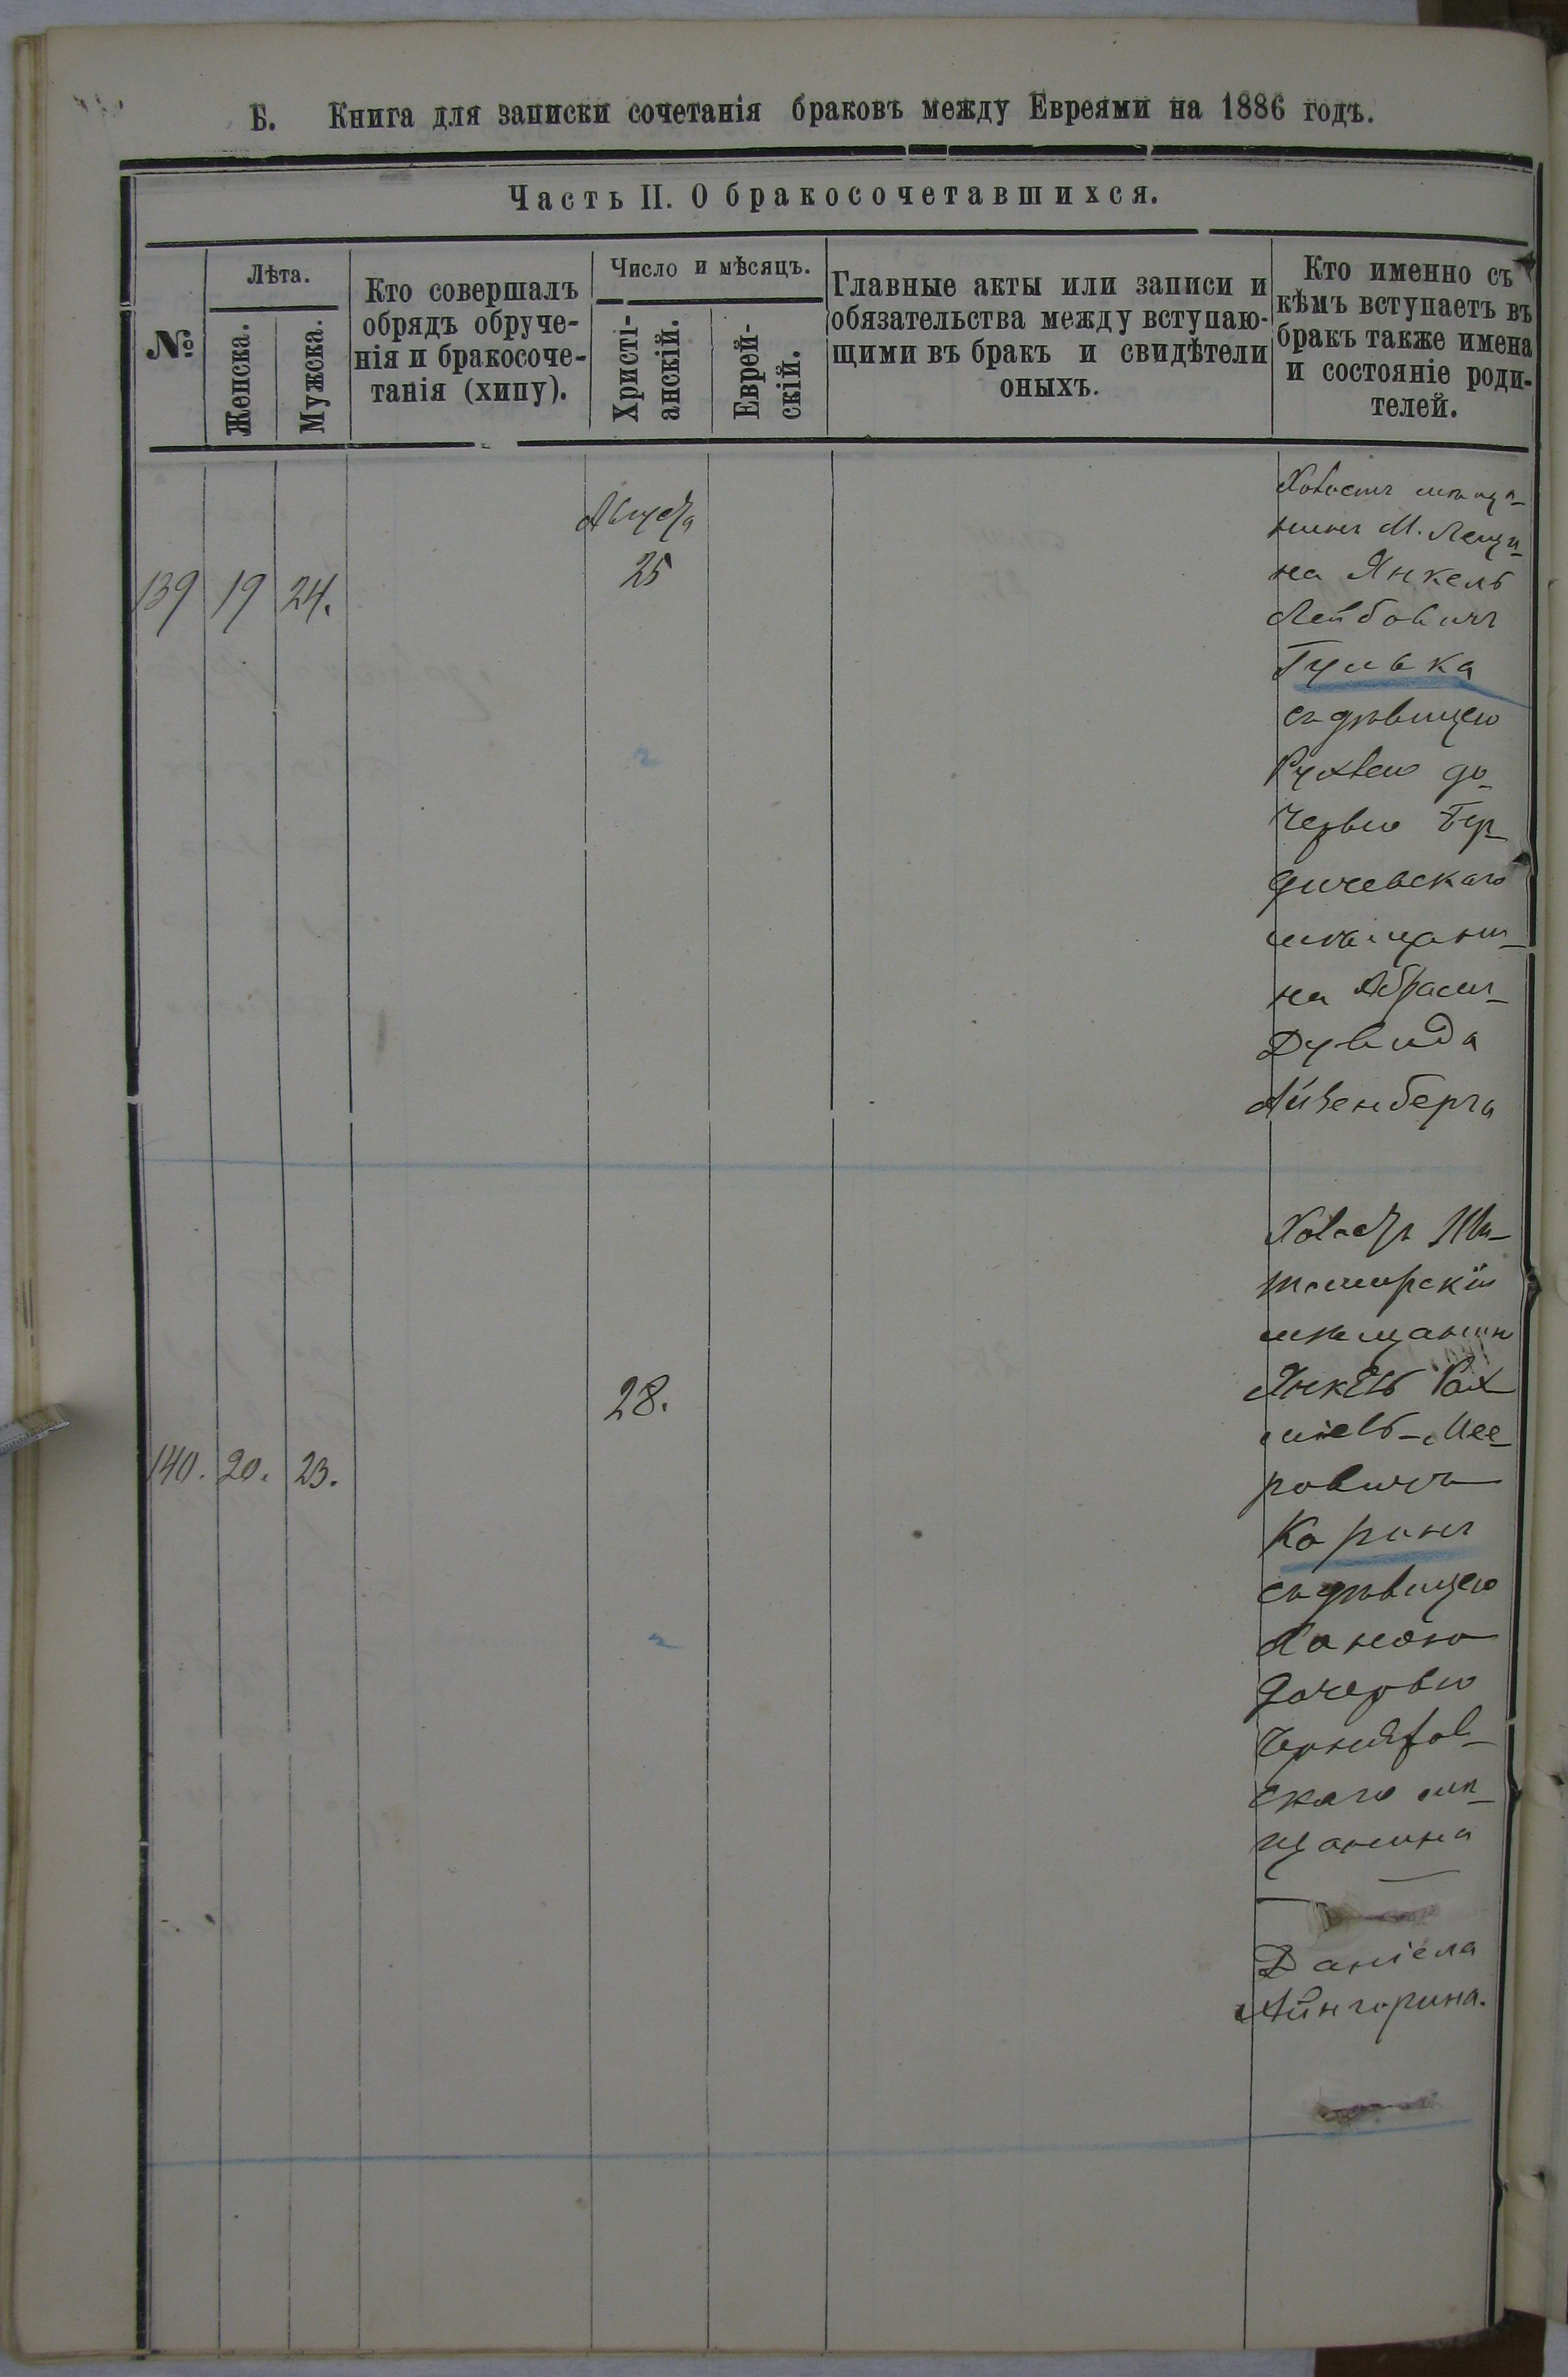 Б. Книга для записки сочетанія браковъ между Евреями на 1886 годъ.
Часть II. О бракосочетавшихся.
№
Лѣта.
Женска.
Мужска.
Кто совершалъ
обрядъ обруче-
нія и бракосоче-
танія (хипу).
Число и мѣсяцъ.
Христі-
анскій.
Еврей-
скій.
Главные акты или записи и
обязательства между вступаю-
щими въ бракъ и свидѣтели
оныхъ.
Кто именно съ
кѣмъ вступаетъ въ
бракъ также имена
и состояніе роди-
телей.
139
19
24.
Августа
25
Холостъ мѣща-
нинъ М. Лещи-
на Янкель
Лейбовичъ
Гулька
съ дѣвицею
Рухлею до-
черью Бер-
дичевскаго
мѣщани-
на Абрамъ-
Дувида
Айзенберга
140.
20.
23.
28.
Холостъ Жи-
томирскій
мѣщанинъ
Янкель Рах-
міель-Мее-
ровичъ
съ дѣвицею
Ханою
дочерью
скаго мѣ-
щанина
Даніела
Айнгорина.